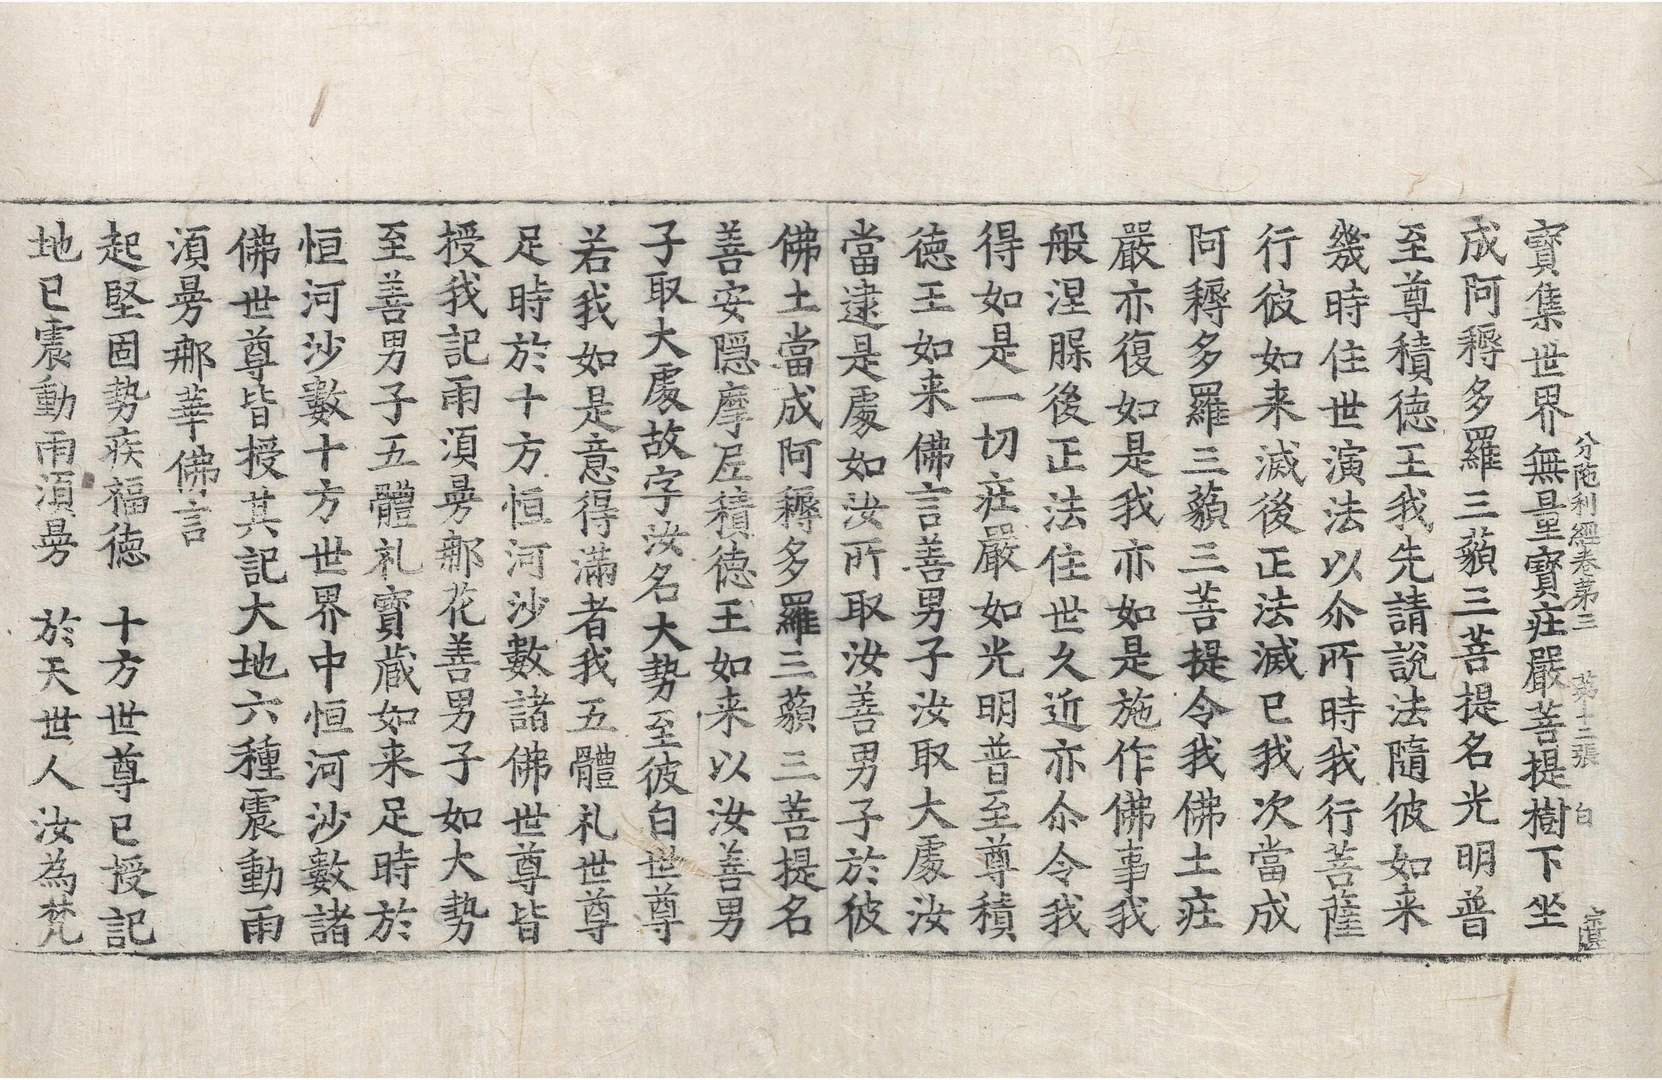 分陁利經卷第三　第十二張　白
寳集世界無量寳荘嚴菩提樹下坐
成阿耨多羅三藐三菩提名光明普
至尊積德王我先請說法隨彼如来
幾時住世演法以尒所時我行菩薩
行彼如来滅後正法滅已我次當成
阿耨多羅三藐三菩提令我佛土荘
嚴亦復如是我亦如是施作佛事我
般涅脲後正法住世久近亦尒令我
得如是一切荘嚴如光明普至尊積
德王如来佛言善男子汝取大處汝
當逮是處如汝所取汝善男子於彼
佛土當成阿耨多羅三藐三菩提名
善安隱摩尼積德王如来以汝善男
子取大處故字汝名大勢至彼白世尊
若我如是意得滿者我五體礼世尊
足時於十方恒河沙數諸佛世尊皆
授我記雨湏曼那花善男子如大勢
至善男子五體礼寳蔵如来足時於
恒河沙數十方世界中恒河沙數諸
佛世尊皆授其記大地六種震動雨
湏曼那華佛言
起堅固勢疾福德　十方世尊已授記
地已震動雨湏曼　於天世人汝為梵